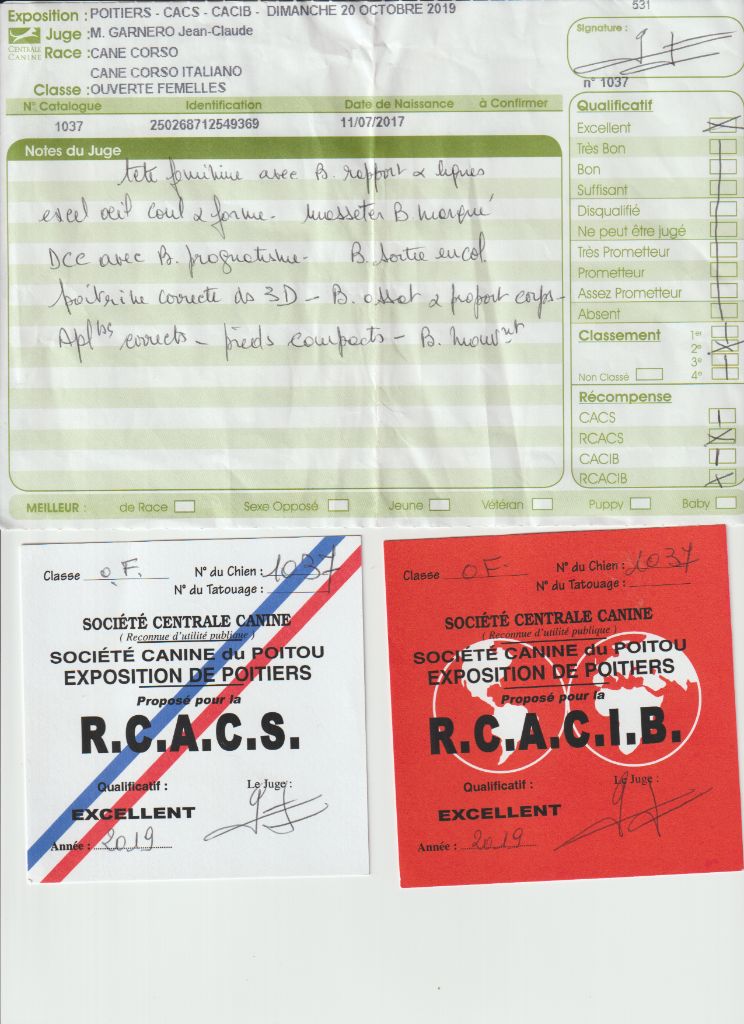 531
Exposition : POITIERS - CACS - CACIB - DIMANCHE 20 OCTOBRE 2019
Juge : M. GARNERO Jean-Claude
CENTRALE CANINE
Race : CANE CORSO
CANE CORSO ITALIANO
Classe : OUVERTE FEMELLES
Signature :
n° 1037
N° Catalogue Identification Date de Naissance à Confirmer
1037 250268712549369 11/07/2017
Notes du Juge
tete feminine avec B. rapport & lignes
excel oeil coul & forme - masseter B marqué
DCC avec B. prognatisme - B. sortie encol
poitrine correcte ds 3D - B. ossat & proport corps -
Apl^bs corrects - pieds compacts - B. mouv^nt
Qualificatif
Excellent
Très Bon
Bon
Suffisant
Disqualifié
Ne peut être jugé
Très Prometteur
Prometteur
Assez Prometteur
Absent
Classement 1er
2e
3e
Non Classé 4e
Récompense
CACS
RCACS
CACIB
RCACIB
MEILLEUR : de Race Sexe Opposé Jeune Vétéran Puppy Baby
Classe O F. N° du Chien : 1037
N° du Tatouage :
SOCIÉTÉ CENTRALE CANINE
( Reconnue d'utilité publique )
SOCIÉTÉ CANINE du POITOU
EXPOSITION DE POITIERS
Proposé pour la
R.C.A.C.S.
Qualificatif : Le Juge :
EXCELLENT
Année : 2019
Classe O F. N° du Chien : 1037
N° du Tatouage :
SOCIÉTÉ CENTRALE CANINE
( Reconnue d'utilité publique )
SOCIÉTÉ CANINE du POITOU
EXPOSITION DE POITIERS
Proposé pour la
R.C.A.C.I.B.
Qualificatif : Le Juge :
EXCELLENT
Année : 2019